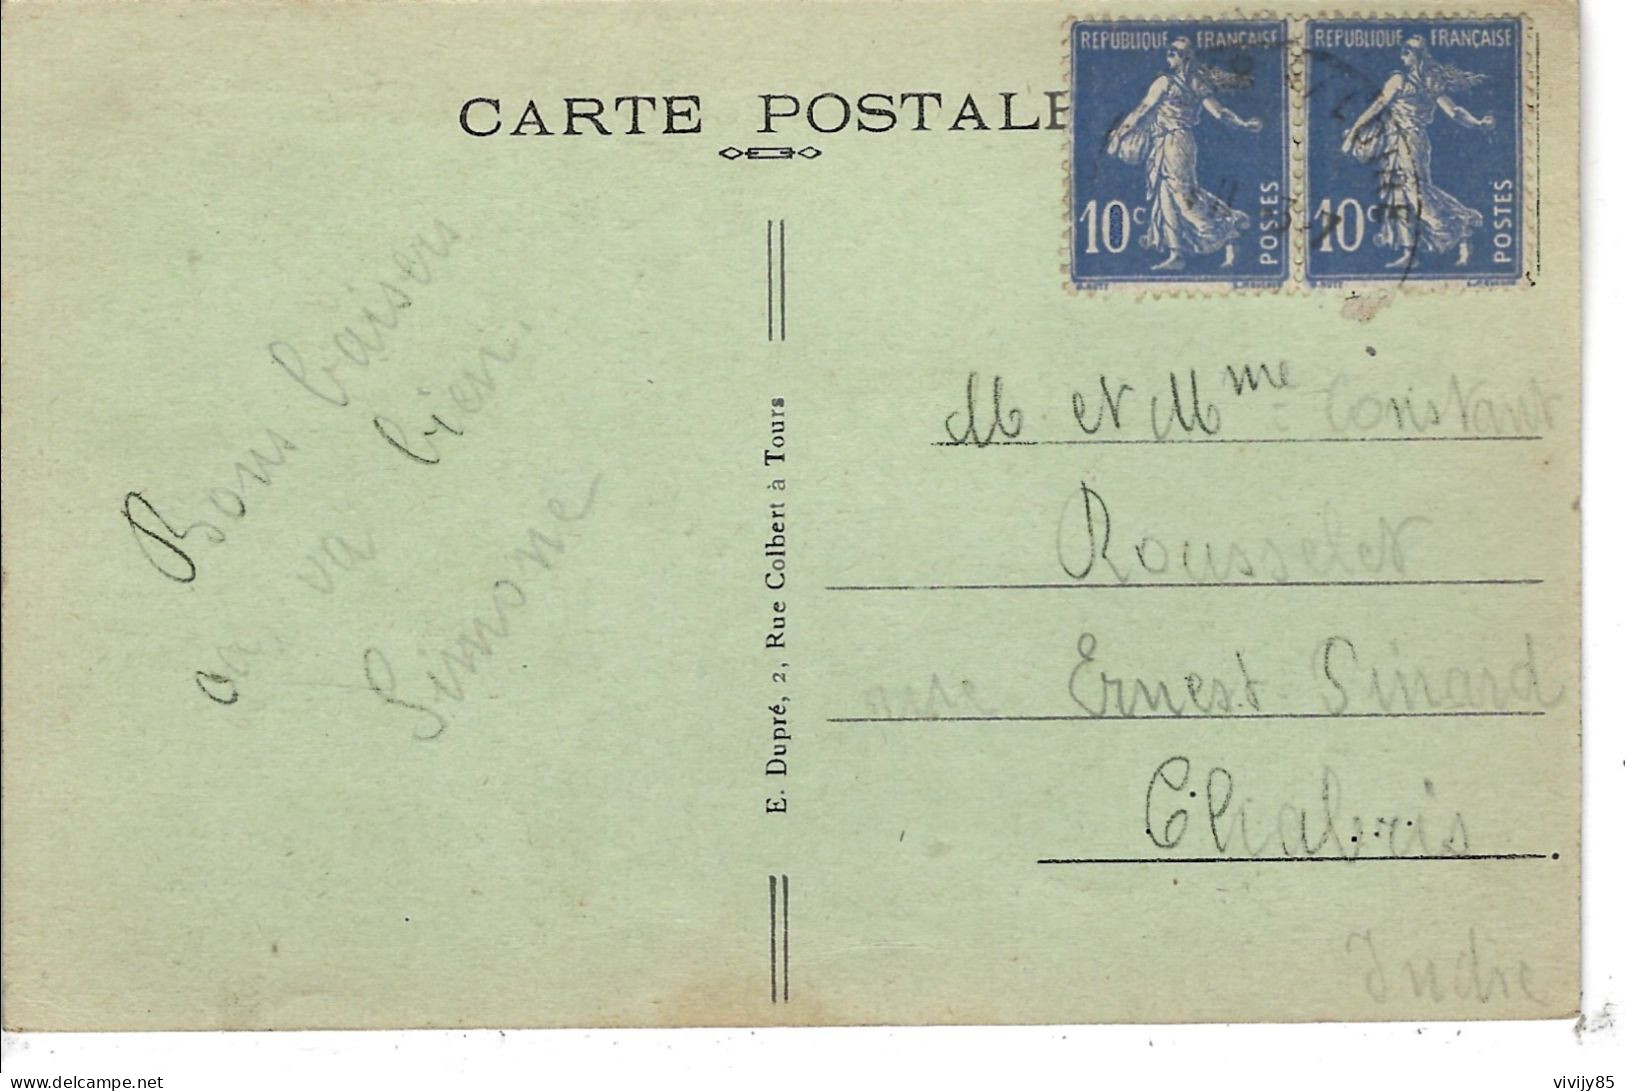 CARTE POSTALE
REPUBLIQUE FRANÇAISE
10c POSTES
REPUBLIQUE FRANÇAISE
10c POSTES
Bons baisers
va bien.
Simone
E. Dupré, 2, Rue Colbert à Tours
M et Mme Constant
Rousselet
rue Ernest Sinard
Chabris
Indre
delcampe.net
vivijy85